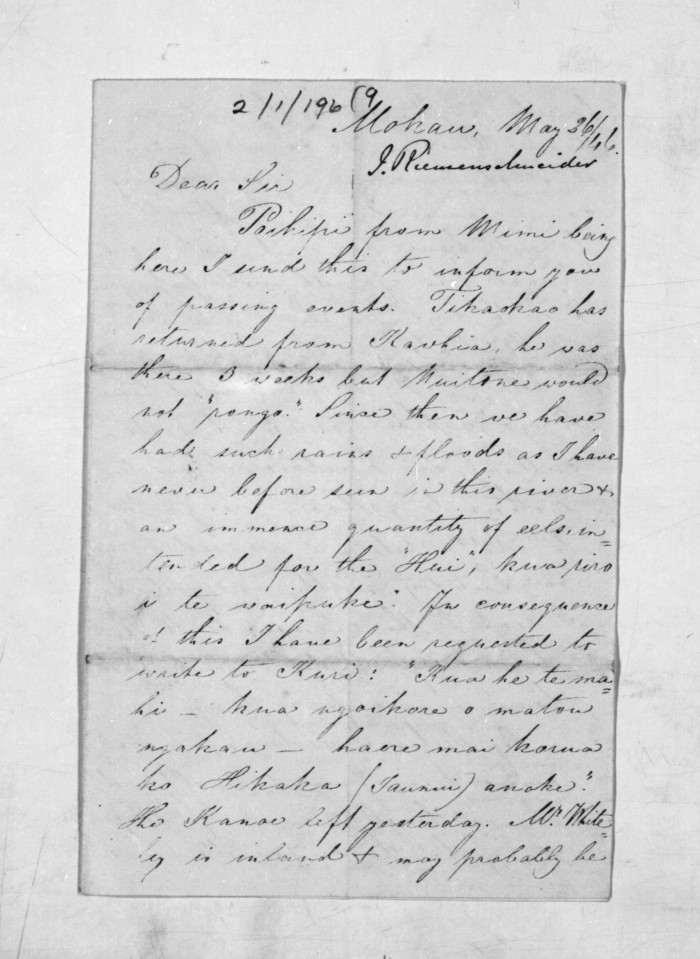 2/1/1969
Mokau, May 26/46.
J. Riemenschneider
Dear Sir
Paihipi from Mimi being
here I send this to inform you
of passing events. Tikaokao has
returned from Kawhia, he was
there 3 weeks but Muitone would
not "rongo." Since then we have
had such rains & floods as I have
never before seen in this river &
an immence quantity of eels in=
tended for the "Hui", kua riro
i te waipuke". In consequence
of this I have been requested to
write to Kuri: "Kua he te ma=
hi - kua ngoikore o matou
ngakau - haere mai korua
ko Hikaka (Taunui) anake".
The Kanae left yesterday. Mr. White=
ly is inland & may probably be